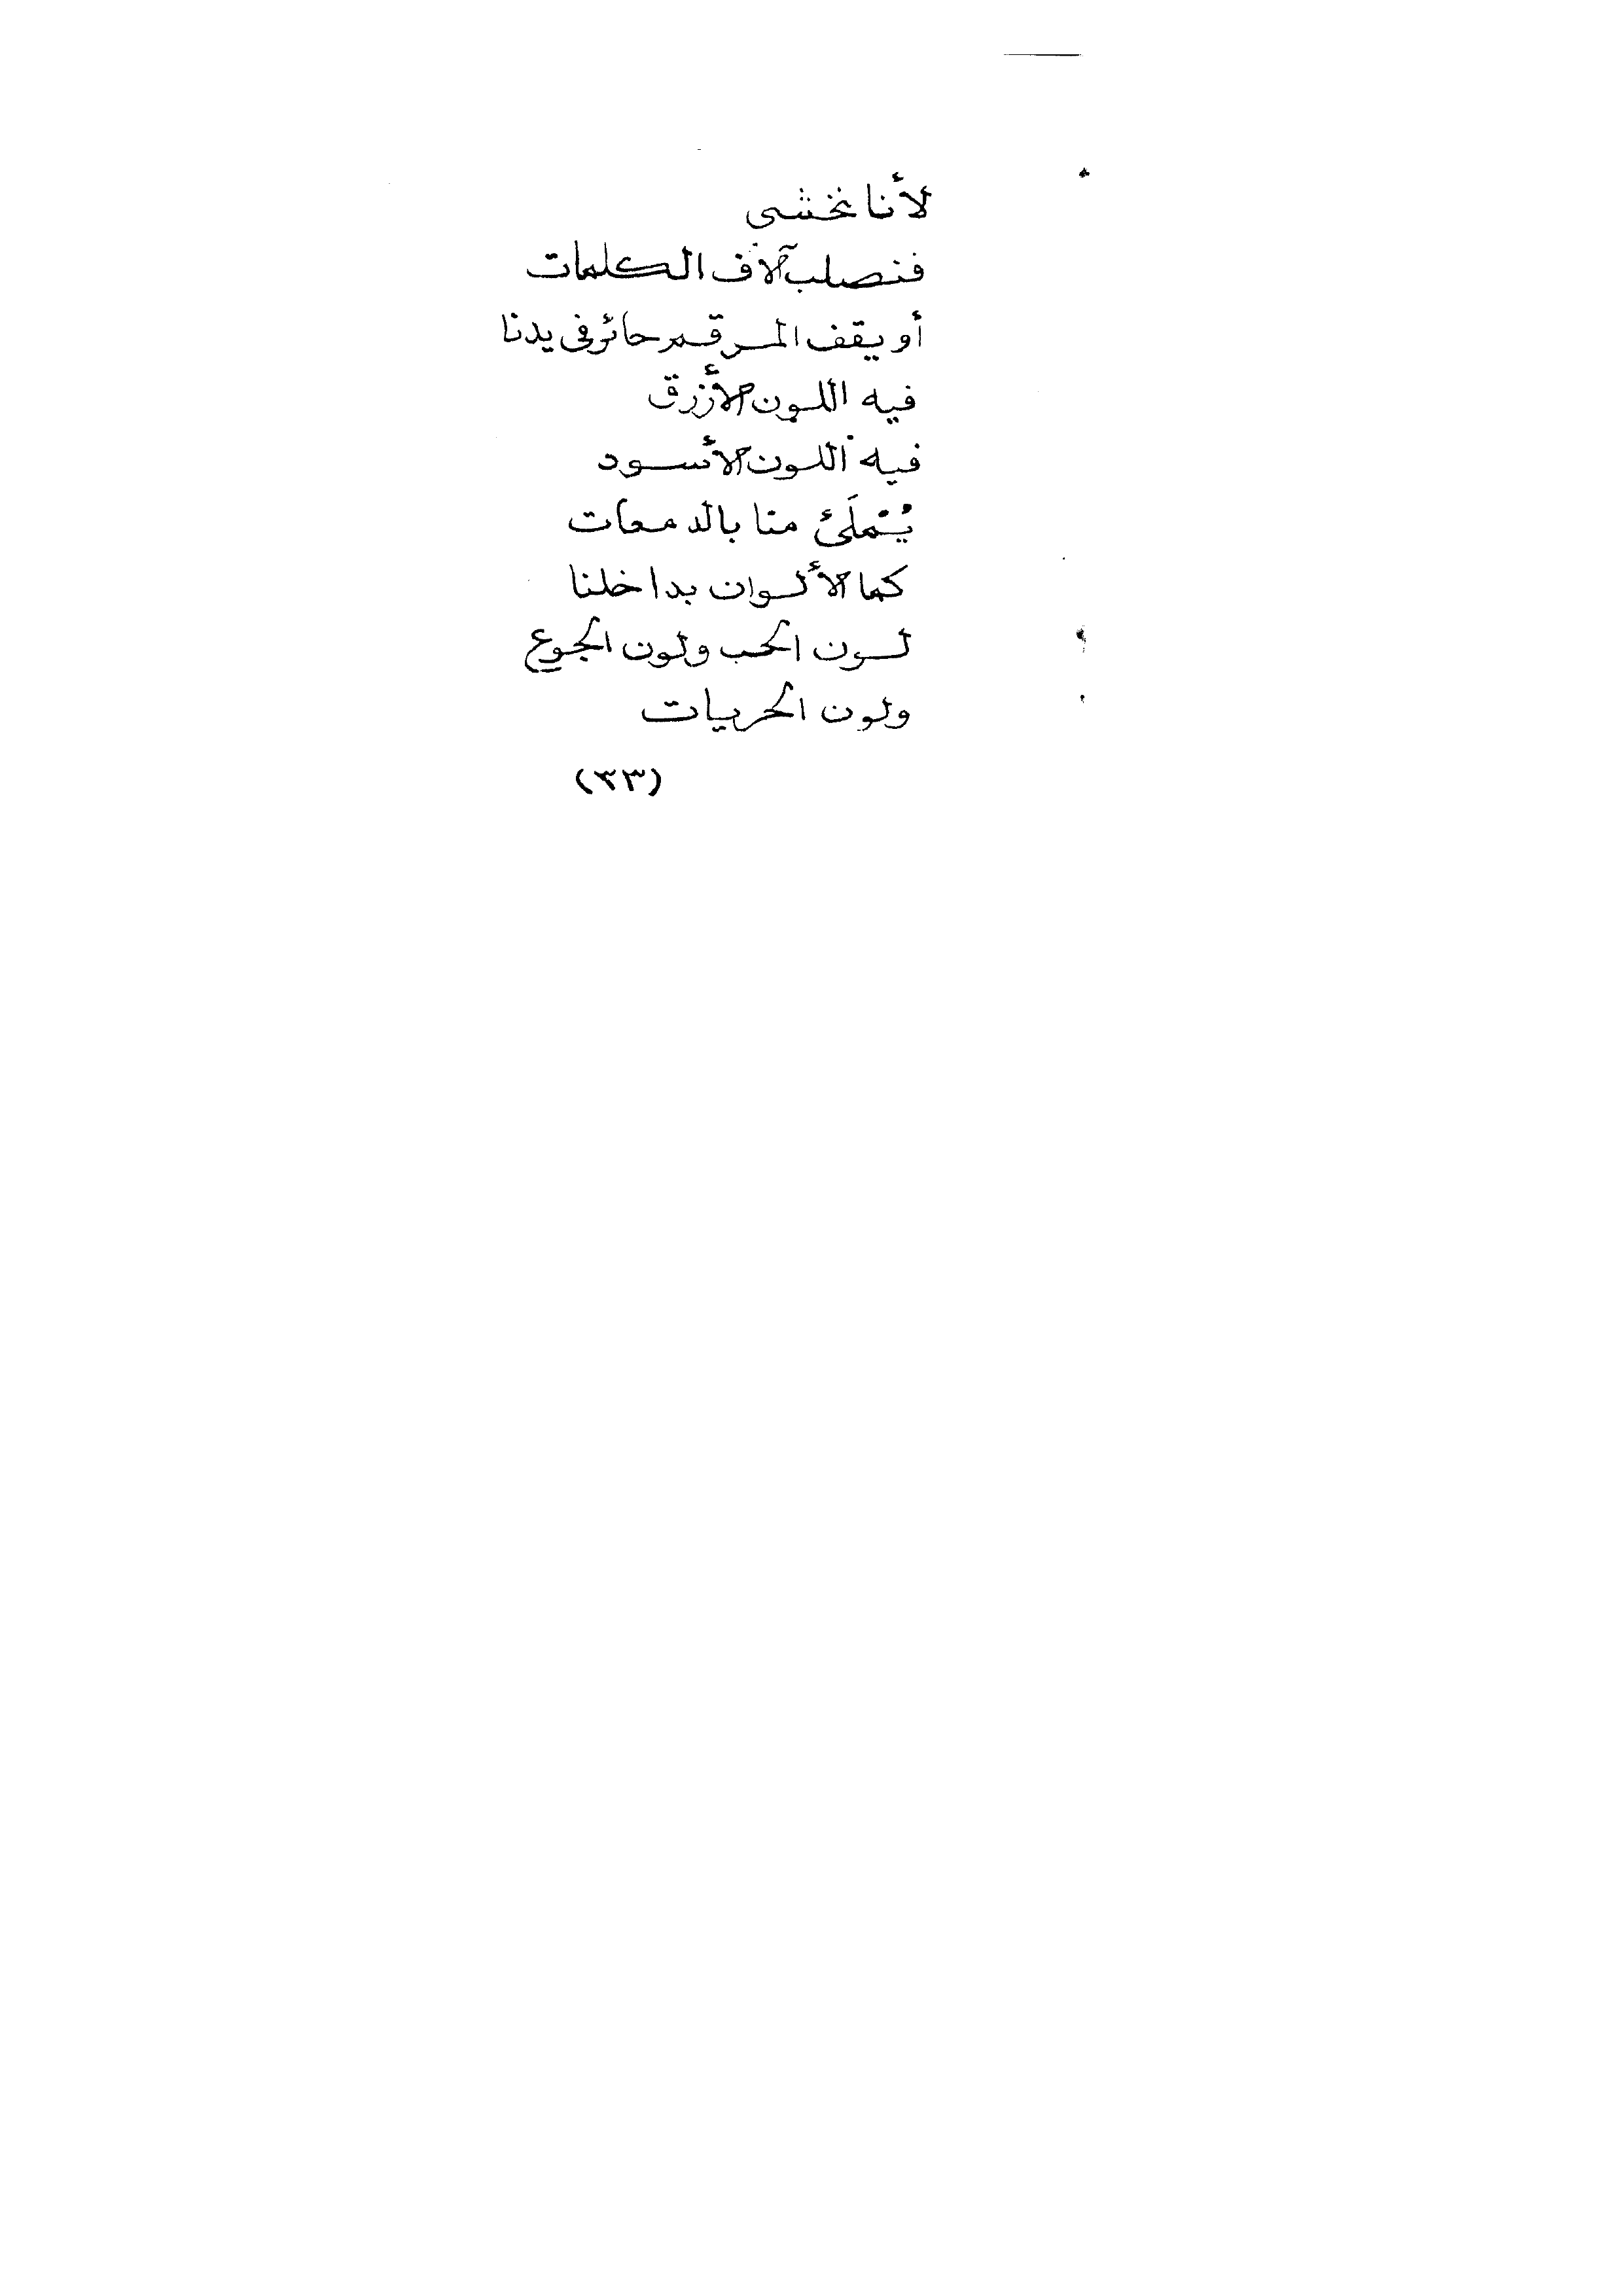 لأنا نخشى
فنصلب آلاف الكلمات
أو يقف المرقم حائر فى يدنا
فيه اللون الأزرق
فيه اللون الأسود
يُتملَئ منا بالدمعات
كما الألوان بداخلنا
لون الحب ولون الجوع
ولون الحريات
(٣٣)